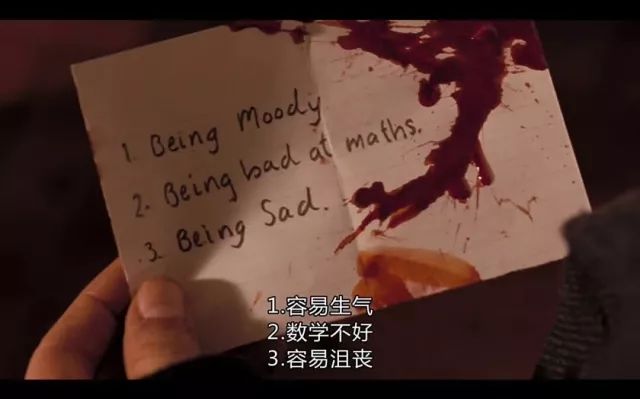 1. Being Moody
2. Being bad at maths.
3. Being Sad.
1.容易生气
2.数学不好
3.容易沮丧